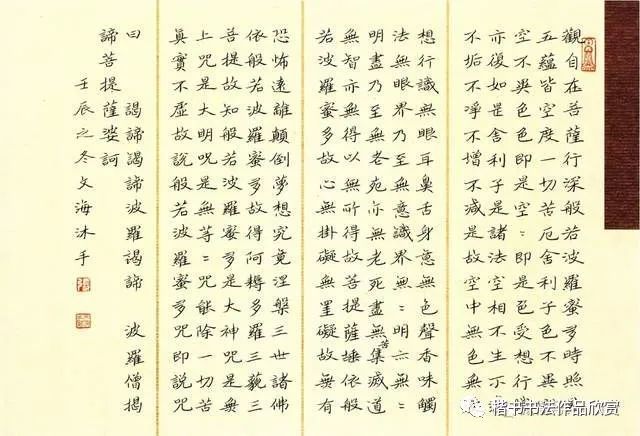 觀自在菩薩行深般若波羅蜜多時照
五蘊皆空度一切苦厄舍利子色不異
空不異色色即是空〻即是色受想行
亦復如是舍利子是諸法空相不生不
不垢不淨不增不減是故空中無色無
想行識無眼耳鼻舌身意無色聲香味觸
法無眼界乃至無意識界無〻明亦無〻
明盡乃至無老死亦無老死盡無苦集滅道
無智亦無得以無所得故菩提薩埵依般
若波羅蜜多故心無掛礙無罣礙故無有
恐怖遠離顛倒夢想究竟涅槃三世諸佛
依般若波羅蜜多故得阿耨多羅三藐三
菩提故知般若波羅蜜多是大神咒是無
上咒是大明咒是無等〻咒能除一切苦
真實不虛故說般若波羅蜜多咒即說咒
曰 謁諦謁諦波羅謁諦 波羅僧揭
諦菩提薩婆訶
壬辰之冬文海沐手
楷书书法作品欣赏